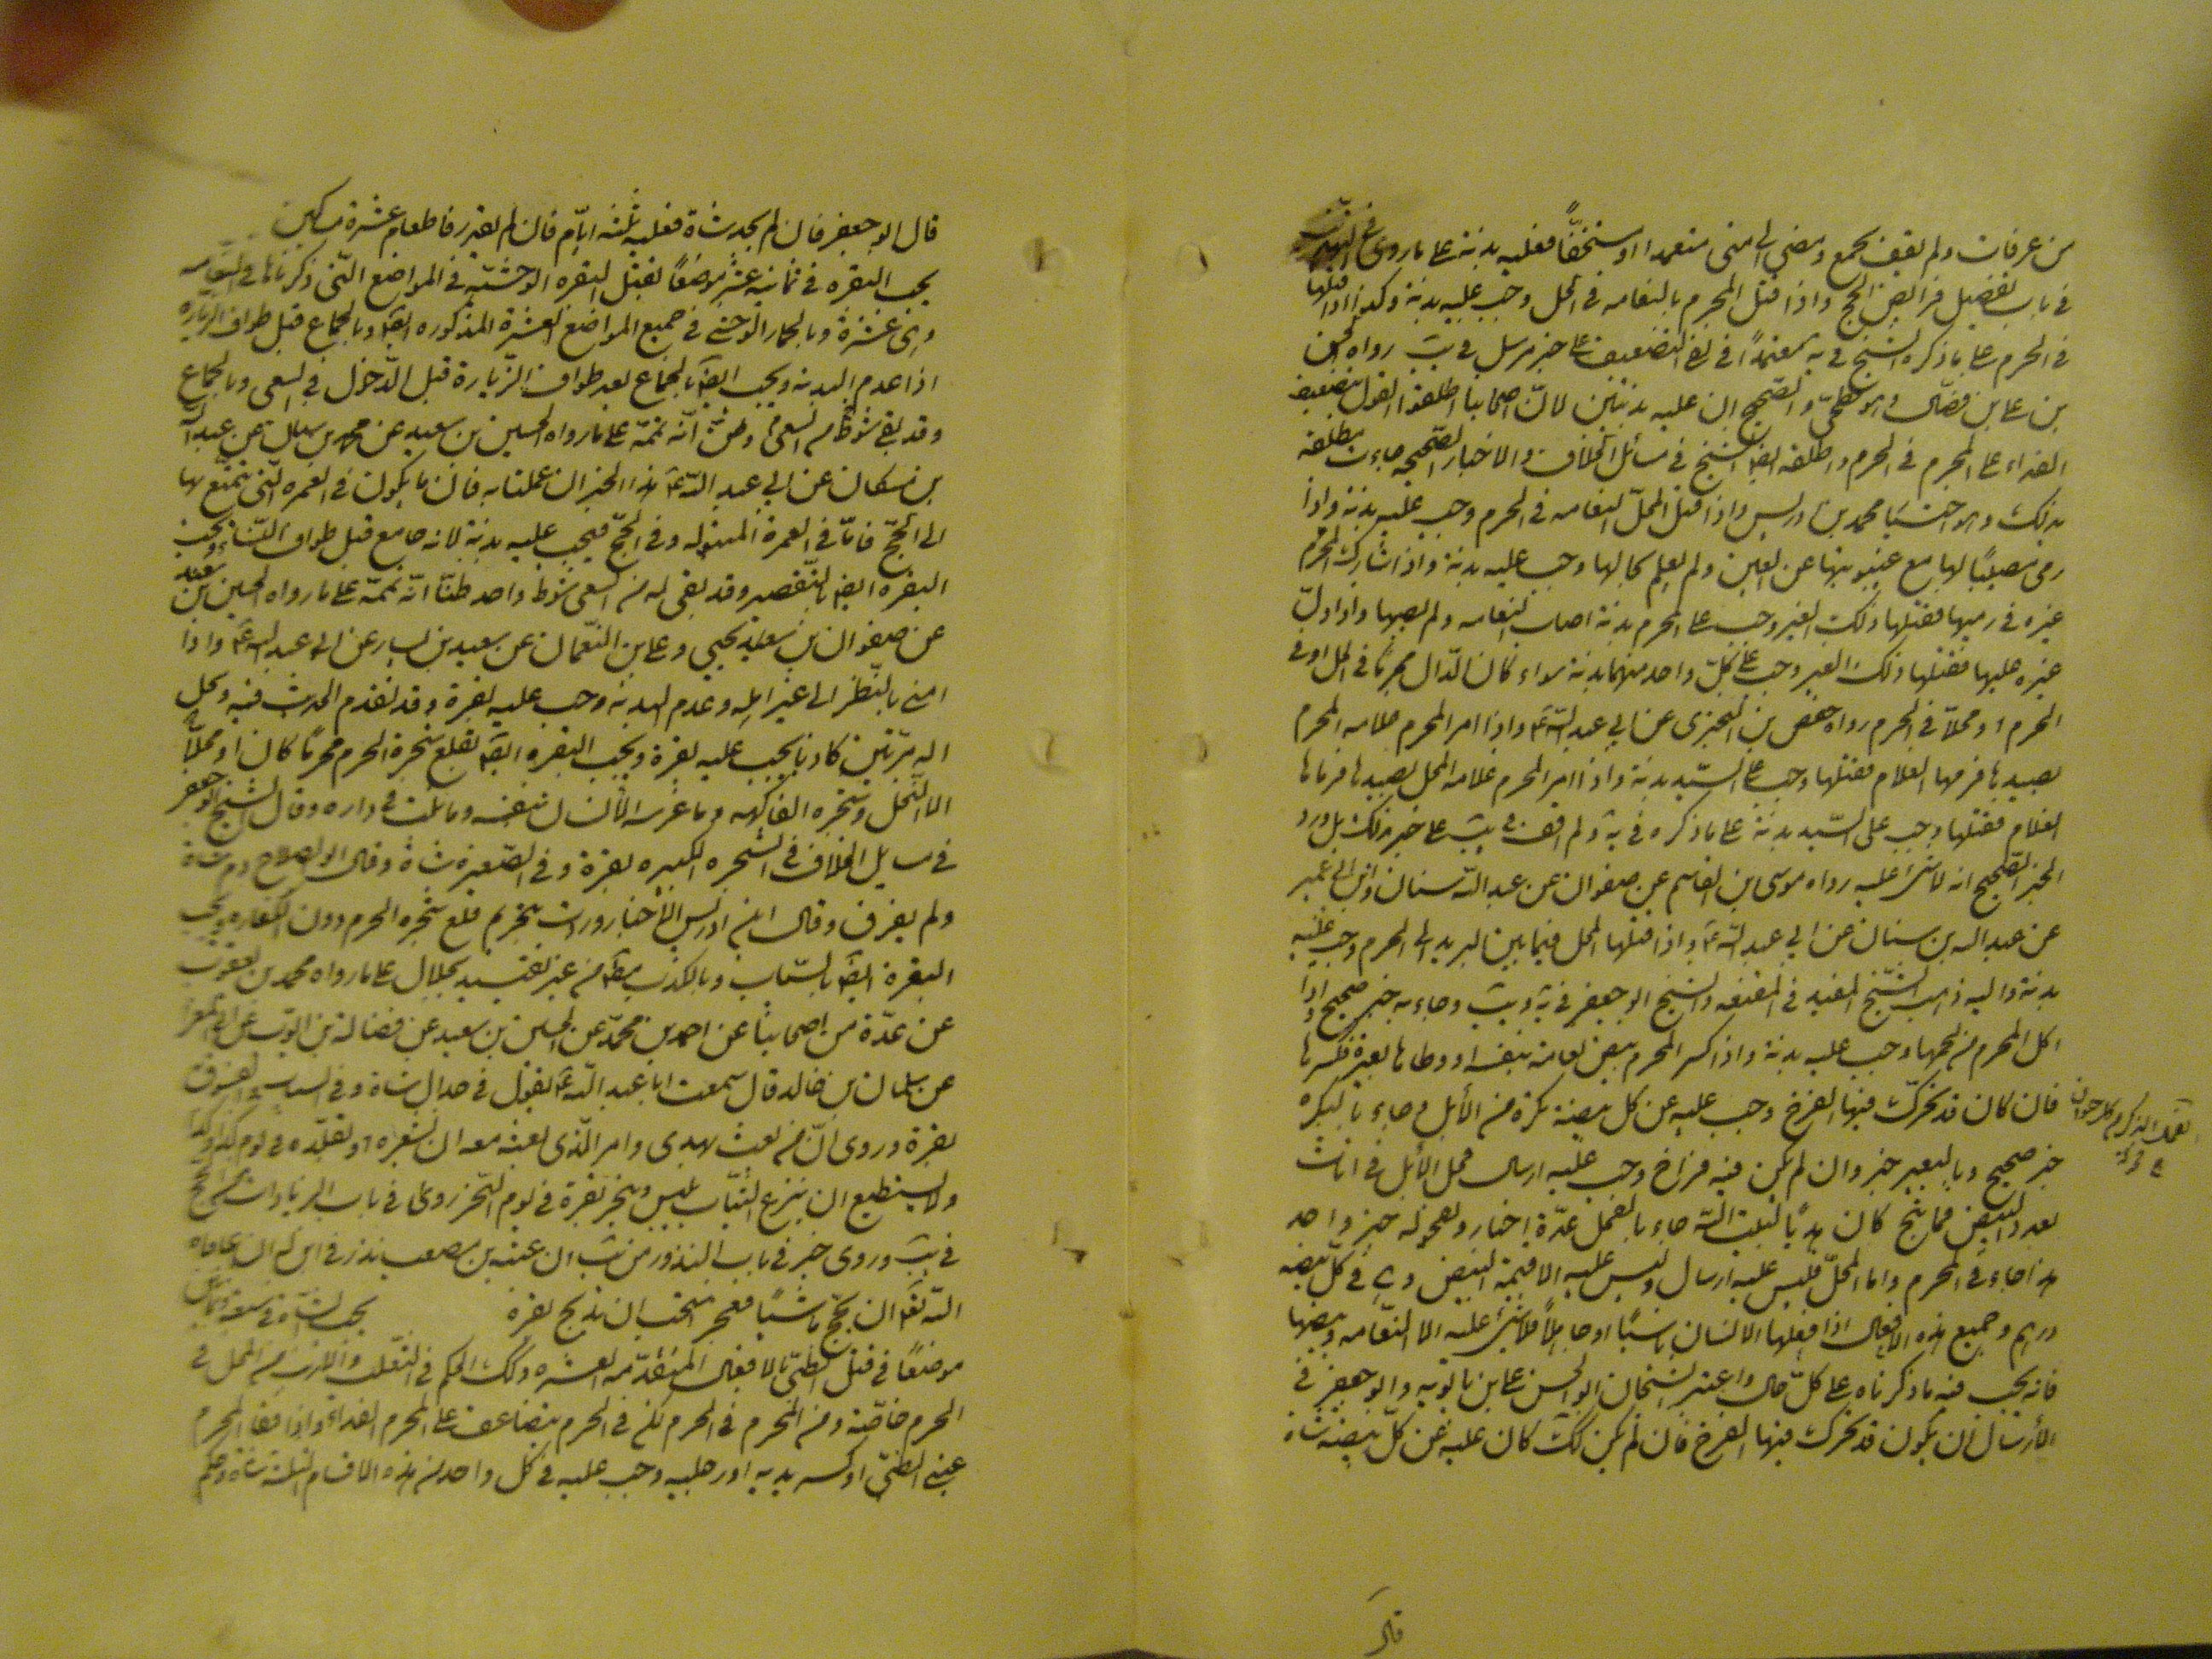 من عرفات ولم يقف بجمع ومضى الى منى متعمدا او مستخفاً فعليه بدنة على ما روى في التهذيب
في باب تفصيل فرائض الحج واذا قتل المحرم بالنعامه في الحل وجب عليه بدنة وكذا اذا قتلها
في الحرم على ما ذكره الشيخ في يه معتمداً في نفى التضعيف على خبر مرسل في يب رواه الحسن
بن على بن فضال وهو فطحى والصحيح ان عليه بدنتين لانّ اصحابنا اطلقوا القول بتضعيف
الفداء على المحرم في الحرم واطلقه ايضا الشيخ في مسائل الخلاف والاخبار الصحيحه جاءت مطلقة
بذلك وهو اختيار محمد بن ادريس واذا قتل المحلّ النعامه في الحرم وجب عليه بدنة واذا
رمى مصيبًا لها مع غيبوبتها عن العين ولم يعلم حالها وجب عليه بدنة واذا شارك المحرم
غيره في رميها فقتلها ذلك الغير وجب على المحرم بدنة اصاب النعامه ولم يصبها واذا دلّ
غيره عليها فقتلها ذلك الغير وجب على كلّ واحد منهما بدنة سواء كان الدّال محرمًا في الحل او في
الحرم او محلاً في الحرم رواه حفص بن البخترى عن ابي عبد الله ع واذا امر المحرم غلامه المحرم
بصيدها فرمها الغلام فقتلها وجب على السّيد بدنة واذا امر المحرم غلامه المحل بصيدها فرماها
الغلام فقتلها وجب على السّيد بدنة على ما ذكره في يه ولم اقف في يب على خبر بذلك بل ورد
الخبر الصّحيح انه لا شئ عليه رواه موسى بن القاسم عن صفوان عن عبد الله سنان وابن ابى عمير
عن عبد الله بن سنان عن ابي عبد الله ع واذا قتلها المحل فيما بين البريد الى الحرم وجب عليه
بدنة واليه ذهب الشيخ المفيد في المقنعه والشيخ ابو جعفر في يه ويب وجاء به خبر صحيح واذا
اكل المحرم من لحمها وجب عليه بدنة واذا كسر المحرم بيض نعامة بنفسه او وطاها بعيره فكسرها
فان كان قد تحرّك فيها الفرخ وجب عليه عن كل بيضة بكرة من الأبل وجاء بالبكره
خبر صحيح وبالبعير خبر وان لم يكن فيه فراخ وجب عليه ارسال فحل الأبل في اناث
بعدد البيض فما نتج كان هديًا لبيت الله جاء بالفحل عدّة اخبار وبفحوله خبر واحد
هذا جاء في المحرم واما المحلّ فليس عليه ارسال وليس عليه الا قيمة البيض وهى في كلّ بيضه
درهم وجميع هذه الافعال اذا فعلها الانسان ناسيًا او جاهلاً فلا شئ عليه الا النعّامه وبيضها
فانه يجب فيه ما ذكرناه على كلّ حال واعتبر الشيخان ابو الحسن على بن بابويه وابو جعفر في
الأرسال ان يكون قد تحرّك فيها الفرخ فان لم يكن كك كان عليه عن كلّ بيضه شاة
قال
قال ابو جعفر فان لم يجد شاة فعليه ثلثة ايّام فان لم يقدر فاطعام عشرة مساكين
يجب البقره في ثمانيه عشر موضعًا بقتل البقره الوحشيّه في المواضع التّى ذكرناها في النعّامه
وهى عشرة وبالحمار الوحشى في جميع المواضع العشرة المذكوره ايضا وبالجماع قبل طواف الزّياره
اذا عدم البدنه ويجب ايضا بالجماع بعد طواف الزّيارة قبل الدّخول في السعى وبالجماع
وقد بقى شوط من السعى وظنّ انّه تممّه على ما رواه الحسين بن سعيد عن محمد بن سنان عن عبد الله
بن مسكان عن ابي عبد الله ع هذا الخبر ان عملنا به فان ما يكون في العمره الّتى يتمتّع بها
الى الحجّ فامّا في العمرة المبتوله وفي الحجّ فيجب عليه بدنة لانه جامع قبل طواف النّساء ويجب
البقره ايضا بالتّقصير وقد بقى له من السعى شوط واحد ظنّاً انّه تممّه على ما رواه الحسين بن سعيد
عن صفوان بن يحيى وعلى بن النّعمان عن سعيد بن يسار عن ابى عبد الله ع واذا
امنى بالنّظر الى غير اهله وعدم البدنة وجب عليه بقرة وقد تقدم الحديث فيه وكل
اله مرّتين كاذبا يجب عليه بقرة ويجب البقره ايضا بقلع شجرة الحرم محرمًا كان او محلاً
الا النّخل وشجره الفاكهه وما غرسه الأنسان بنفسه وما نبت في داره وقال الشيخ ابو جعفر
في مسايل الخلاف في الشجره الكبيره بقرة وفي الصّغيرة شاة وقال ابو الصلاح دم شاة
ولم يفرق وقال ابن ادريس الأخبار وردت بتحريم قلع شجره الحرم دون الكفاره ويجب
البقرة ايضا بالسّباب وبالكذب من غير تقييد بجلال على ما رواه محمد بن يعقوب
عن عدّة من اصحابنا عن احمد بن محمّد عن الحسين بن سعيد عن فضالة بن ايوب عن ابى المعزا
عن سليمان بن خالد قال سمعت ابا عبد الله ع يقول في جدال شاة وفي السباب والفسوق
بقرة وروى انّ من بعث بهدى وامر الّذى بعثه معه ان يشعره او يقلّده في يوم كذا وكذا
ولا يستطيع ان ينزع الثياب يلبس وينحر بقرة في يوم النّحر روى في باب الزيادات من الحج
في يب وروى خبر في باب النذور من يب ان عنبه بن مصعب نذر في ابن له ان عافاه
الله تعا ان يحج ماشيًا فعجز يستحب ان يذبح بقره يجب الشاة في سبعة وثمانين
موضعًا في قتل الظبى بالافعال المتقدّمه العشره وكك الحكم في الثعلب والارنب من المحل في
الحرم خاصّة ومن المحرم في الحرم لكن في الحرم يتضاعف على المحرم الفداء واذا فقا المحرم
عينى الظبىّ او كسر يديه او رجليه وجب عليه في كل واحد من هذه الاقسام الثلثه شاة وحكم